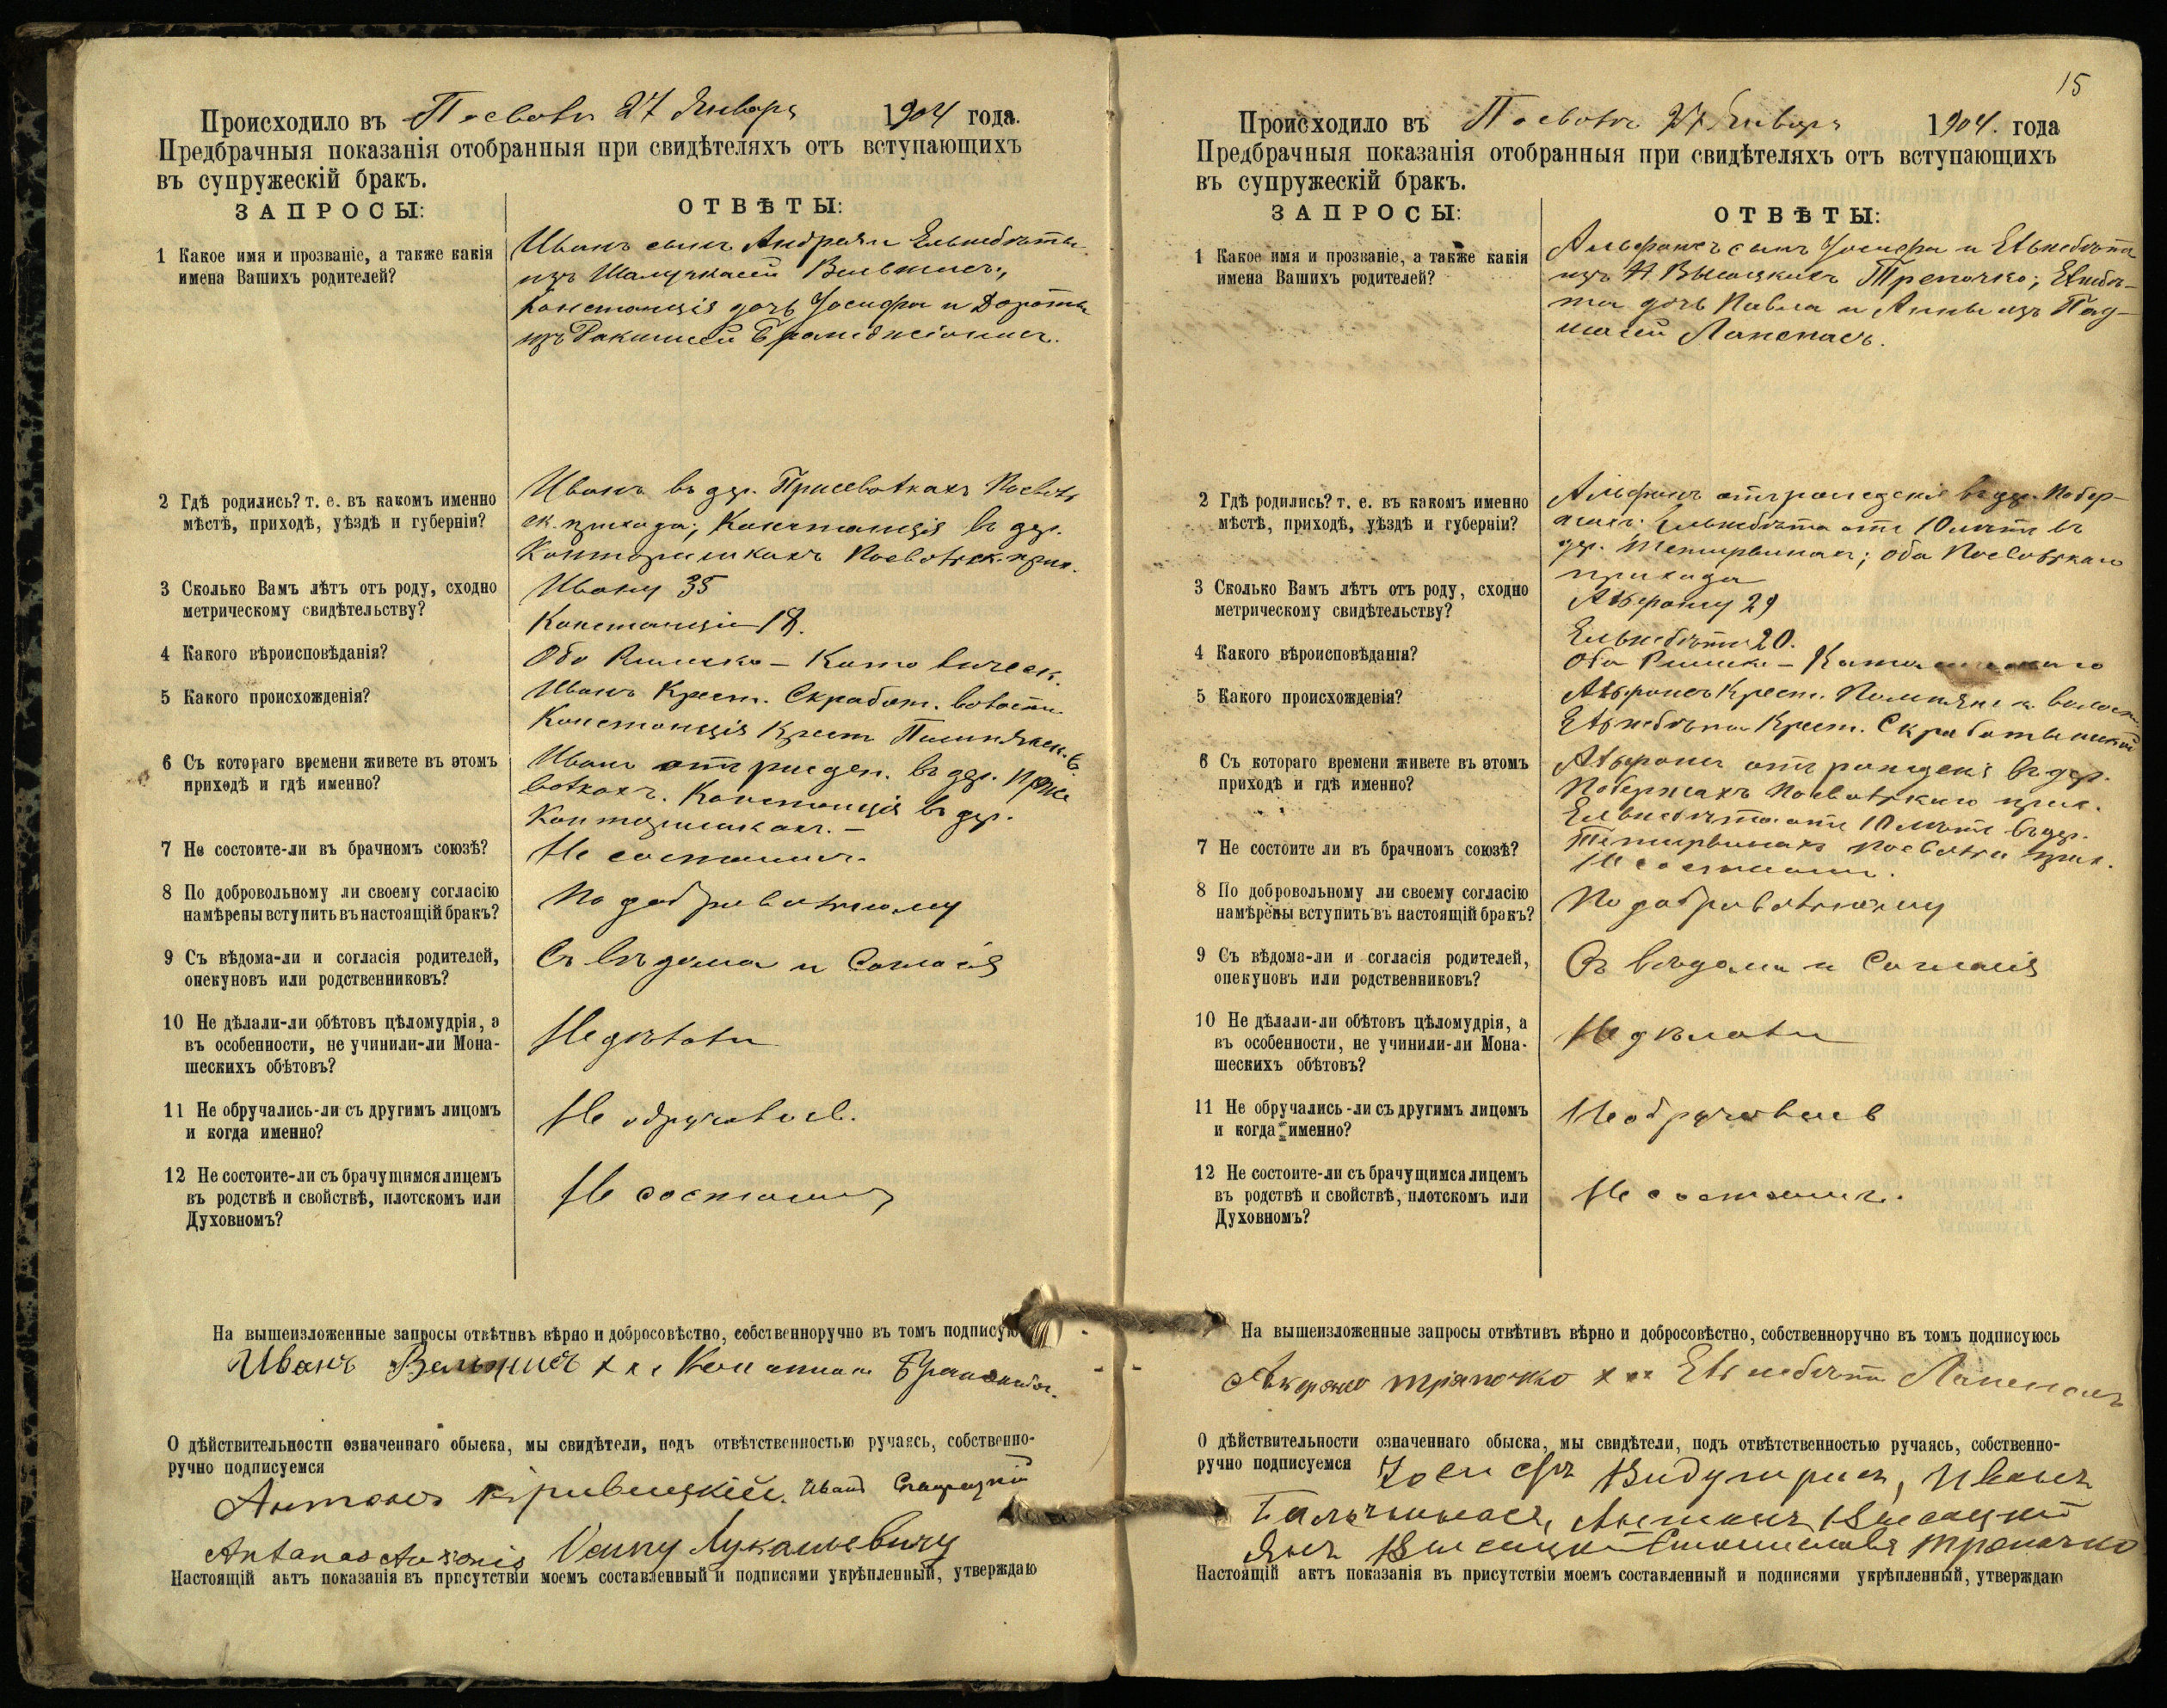 Происходило въ Посволи 27 Января 1904 года.
Предбрачныя показанія отобранныя при свидѣтеляхъ отъ вступающихъ
въ супружескій бракъ.
ЗАПРОСЫ:
ОТВѢТЫ:
1 Какое имя и прозваніе, а также какія
имена Вашихъ родителей?
Иванъ сынъ Андрея и Ельжбѣты
изъ
Констанція дочь Іосифа и Дороты
изъ
2 Гдѣ родились? т. е. въ какомъ именно
мѣстѣ, приходѣ, уѣздѣ и губерніи?
Иванъ въ дер.
ск. прихода; Констанція въ дер.
3 Сколько Вамъ лѣтъ отъ роду, сходно
метрическому свидѣтельству?
Ивану 35
Констанціи 18.
4 Какого вѣроисповѣданія?
Оба Римско-Католическ.
5 Какого происхожденія?
Иванъ Крест. Скработ. волости
Констанція Крест
6 Съ котораго времени живете въ этомъ
приходѣ и гдѣ именно?
Иванъ отъ рожден. въ дер.
Констанція въ дер.
7 Не состоите-ли въ брачномъ союзѣ?
Не состоимъ.
8 По добровольному ли своему согласію
намѣрены вступить въ настоящій бракъ?
По добровольному
9 Съ вѣдома-ли и согласія родителей,
опекуновъ или родственниковъ?
Съ вѣдома и согласія
10 Не дѣлали-ли обѣтовъ цѣломудрія, а
въ особенности, не учинили-ли Мона-
шескихъ обѣтовъ?
Не дѣлали
11 Не обручались-ли съ другимъ лицомъ
и когда именно?
Не обручались.
12 Не состоите-ли съ брачущимся лицемъ
въ родствѣ и свойствѣ, плотскомъ или
Духовномъ?
Не состоимъ
На вышеизложенные запросы отвѣтивъ вѣрно и добросовѣстно, собственноручно въ томъ подписую
Иванъ
О дѣйствительности означеннаго обыска, мы свидѣтели, подъ отвѣтственностью ручаясь, собственно-
ручно подписуемся
Антонъ
Antanas
Настоящій актъ показанія въ присутствіи моемъ составленный и подписями укрѣпленный, утверждаю
15
Происходило въ Посволи 27 Января 1904. года
Предбрачныя показанія отобранныя при свидѣтеляхъ отъ вступающихъ
въ супружескій бракъ.
ЗАПРОСЫ:
ОТВѢТЫ:
1 Какое имя и прозваніе, а также какія
имена Вашихъ родителей?
Альфонсъ сынъ Іосифа и Ельжбѣты
изъ Высоцкихъ Трепочко; Ельжбѣ-
та дочь Павла и Анны изъ
2 Гдѣ родились? т. е. въ какомъ именно
мѣстѣ, приходѣ, уѣздѣ и губерніи?
Альфонсъ отъ рожденія въ дер.
Ельжбѣта отъ 10 лѣтъ въ
дер. оба Посвольскаго
прихода
3 Сколько Вамъ лѣтъ отъ роду, сходно
метрическому свидѣтельству?
Альфонсу 29
Ельжбѣтѣ 20.
4 Какого вѣроисповѣданія?
Оба Римско-Католическаго
5 Какого происхожденія?
Альфонсъ Крест.
Ельжбѣта Крест.
6 Съ котораго времени живете въ этомъ
приходѣ и гдѣ именно?
Альфонсъ отъ рожденія въ дер.
Посвольскаго прих.
Ельжбѣта отъ 10 лѣтъ въ дер.
прих.
7 Не состоите ли въ брачномъ союзѣ?
Не состоимъ.
8 По добровольному ли своему согласію
намѣрены вступить въ настоящій бракъ?
По добровольному
9 Съ вѣдома-ли и согласія родителей,
опекуновъ или родственниковъ?
Съ вѣдома и согласія
10 Не дѣлали-ли обѣтовъ цѣломудрія, а
въ особенности, не учинили-ли Мона-
шескихъ обѣтовъ?
Не дѣлали
11 Не обручались-ли съ другимъ лицомъ
и когда именно?
Не обручались
12 Не состоите-ли съ брачущимся лицемъ
въ родствѣ и свойствѣ, плотскомъ или
Духовномъ?
Не состоимъ.
На вышеизложенные запросы отвѣтивъ вѣрно и добросовѣстно, собственноручно въ томъ подписуюсь
О дѣйствительности означеннаго обыска, мы свидѣтели, подъ отвѣтственностью ручаясь, собственно-
ручно подписуемся Іосифъ Иванъ
Антонъ Высоцкій
Янъ Высоцкій Станиславъ
Настоящій актъ показанія въ присутствіи моемъ составленный и подписями укрѣпленный, утверждаю